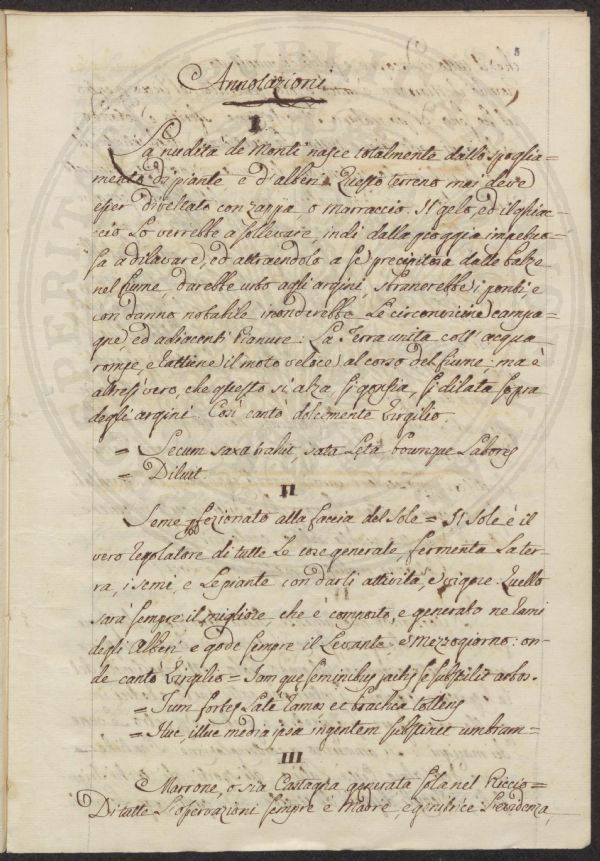 5
Annotazioni
I
La nudità de Monti nasce totalmente dallo spoglia-
mento di piante e d'alberi. Questo terreno mai deve
esser divettato con zappa o marraccio. Il gelo, ed il ghiac-
cio lo verrebbe a sollevare indi dalla pioggia impetuo-
sa a dilavare, ed attraendolo a se precipitosa dalle balze
nel fiume, darebbe urto agli argini, stranerebbe i ponti, e
con danno notabile inonderebbe le circonvicine campa-
gne ed adiacenti Pianure: La Terra unita coll'acqua
rompe, e rattiene il moto veloce al corso del fiume; ma è
altresì vero, che questo si alza si gonfia, si dilata sopra
degli argini. Così cantò dolcemente Virgilio.
= Secum saxa trahit sata Leta bounque Labores
= Diluit.
II
Seme perfezionato alla faccia del Sole = Il Sole è il
vero regolatore di tutte le cose generate, fermenta la ter-
ra, i semi, e le piante con darli attività, e vigore. Quello
sarà sempre il migliore, che è composto, e generato ne rami
degli Alberi e gode sempre il Levante e Mezzogiorno: on-
de cantò Virgilio = Iam que seminibus jactis se substulit arbos.
= Tum fortes Late ramos et brachia tollens
= Huc, illuc media ipsa ingentem sustinet umbram =
III
Marrone, o sia Castagna generata sola nel Riccio =
Di tutte l'osservazioni sempre è Madre, e genitrice l'evidenza,